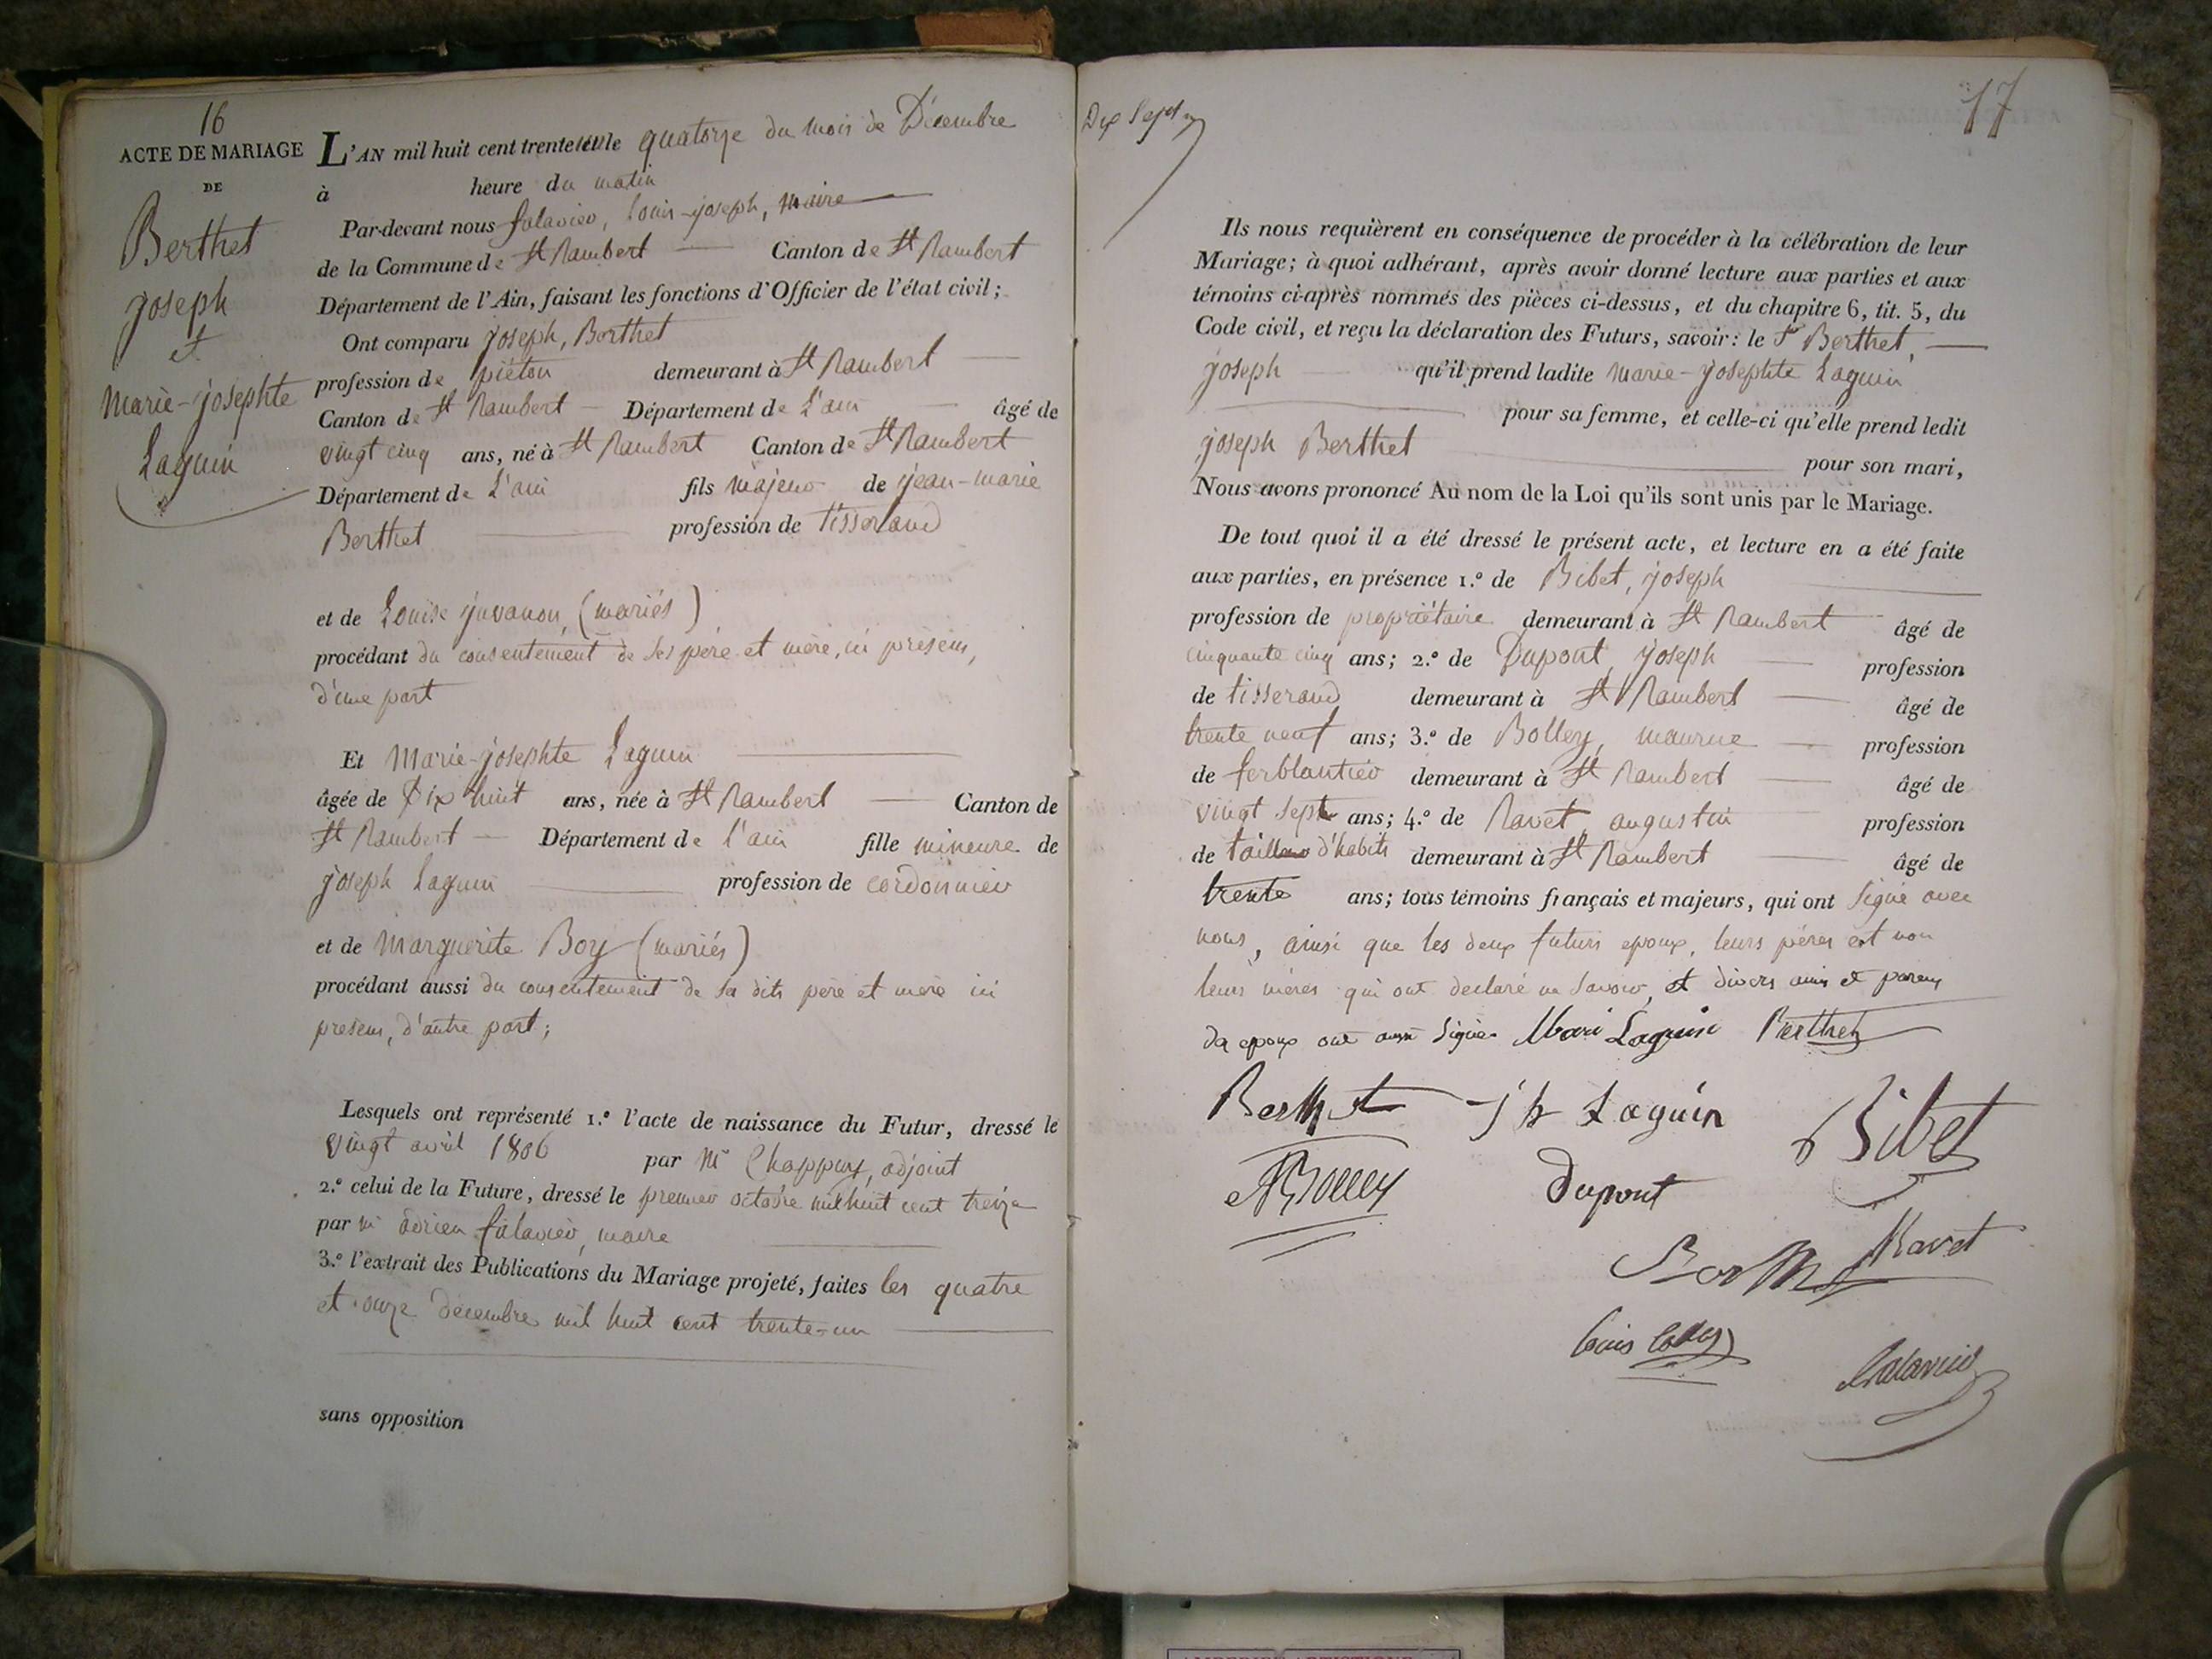 16
ACTE DE MARIAGE
DE
Berthet
joseph
et
Marie-josephte
Laguin
L'AN mil huit cent trente un le quatorze du mois de Décembre
à heure du matin
Par-devant nous falavier, louis-joseph, maire
de la Commune de St Rambert Canton de St Rambert
Département de l'Ain, faisant les fonctions d'Officier de l'état civil;
Ont comparu joseph, Berthet
profession de piéton demeurant à St Rambert
Canton de St Rambert Département de L'ain âgé de
vingt cinq ans, né à St Rambert Canton de St Rambert
Département de L'ain fils majeur de jean-marie
Berthet profession de tisserand
et de Louise juvanon, (mariés)
procédant du consentement de ses père et mère, ici présens,
d'une part
Et Marie-josephte Laguin
âgée de Dix huit ans, née à St Rambert Canton de
St Rambert Département de l'ain fille mineure de
joseph Laguin profession de cordonnier
et de Marguerite Boy (mariés)
procédant aussi du consentement de sa dits père et mère ici
presens, d'autre part;
Lesquels ont représenté 1.º l'acte de naissance du Futur, dressé le
vingt avril 1806 par Mr Chappuy, adjoint
2.º celui de la Future, dressé le premier octobre mil huit cent treize
par Mr adrien falavier, maire
3.º l'extrait des Publications du Mariage projeté, faites les quatre
et onze décembre mil huit cent trente-un
sans opposition
Dix Sept
17
Ils nous requièrent en conséquence de procéder à la célébration de leur
Mariage; à quoi adhérant, après avoir donné lecture aux parties et aux
témoins ci-après nommés des pièces ci-dessus, et du chapitre 6, tit. 5, du
Code civil, et reçu la déclaration des Futurs, savoir: le Sr Berthet,
joseph qu'il prend ladite Marie-josephte Laguin
pour sa femme, et celle-ci qu'elle prend ledit
joseph Berthet
pour son mari,
Nous avons prononcé Au nom de la Loi qu'ils sont unis par le Mariage.
De tout quoi il a été dressé le présent acte, et lecture en a été faite
aux parties, en présence 1.º de Bibet, joseph
profession de propriétaire demeurant à St Rambert âgé de
cinquante cinq ans; 2.º de Dupont, joseph profession
de tisserand demeurant à St Rambert âgé de
trente neuf ans; 3.º de Bolley, maurice profession
de ferblantier demeurant à St Rambert âgé de
vingt sept ans; 4.º de Ravet, augustin profession
de tailleur d'habits demeurant à St Rambert âgé de
trente ans; tous témoins français et majeurs, qui ont signé avec
nous, ainsi que les deux futurs epoux, leurs pères et non
leurs mères qui ont declaré ne savoir, et divers amis et parens
des epoux ont aussi signé. Mari Laguin Berthet
Berthet jh Laguin Bibet
Bolley Dupont
Ravet
Louis
falavier